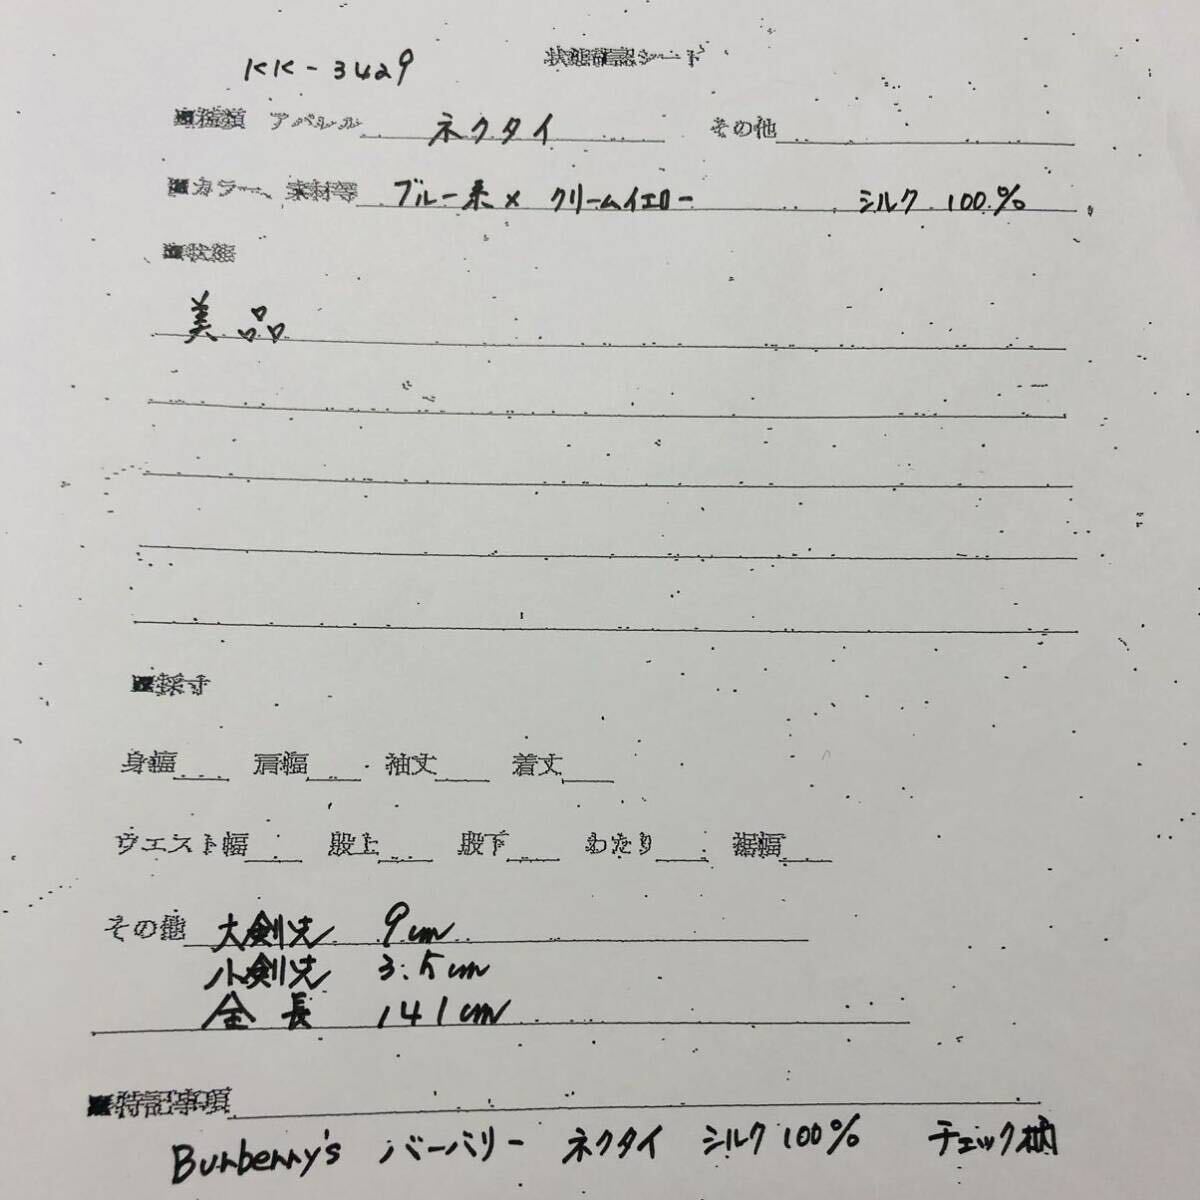 KK-3429 状態確認シート
■種類 アパレル ネクタイ その他
■カラー、素材等 ブルー系× クリームイエロー シルク 100%
■状態
美品
■採寸
身幅 肩幅 袖丈 着丈
ウエスト幅 股上 股下 わたり 裾幅
その他 大剣先 9cm
小剣先 3.5cm
全長 141cm
■特記事項
Burberry's バーバリー ネクタイ シルク100% チェック柄